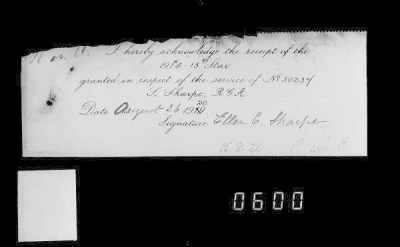 I hereby acknowledge the receipt of the
1914-15 Star
granted in respect of the service of No 50237
S. Sharpe, R.G.A
Date August 26 1920
Signature Ellen E. Sharpe
25.8.20
0600